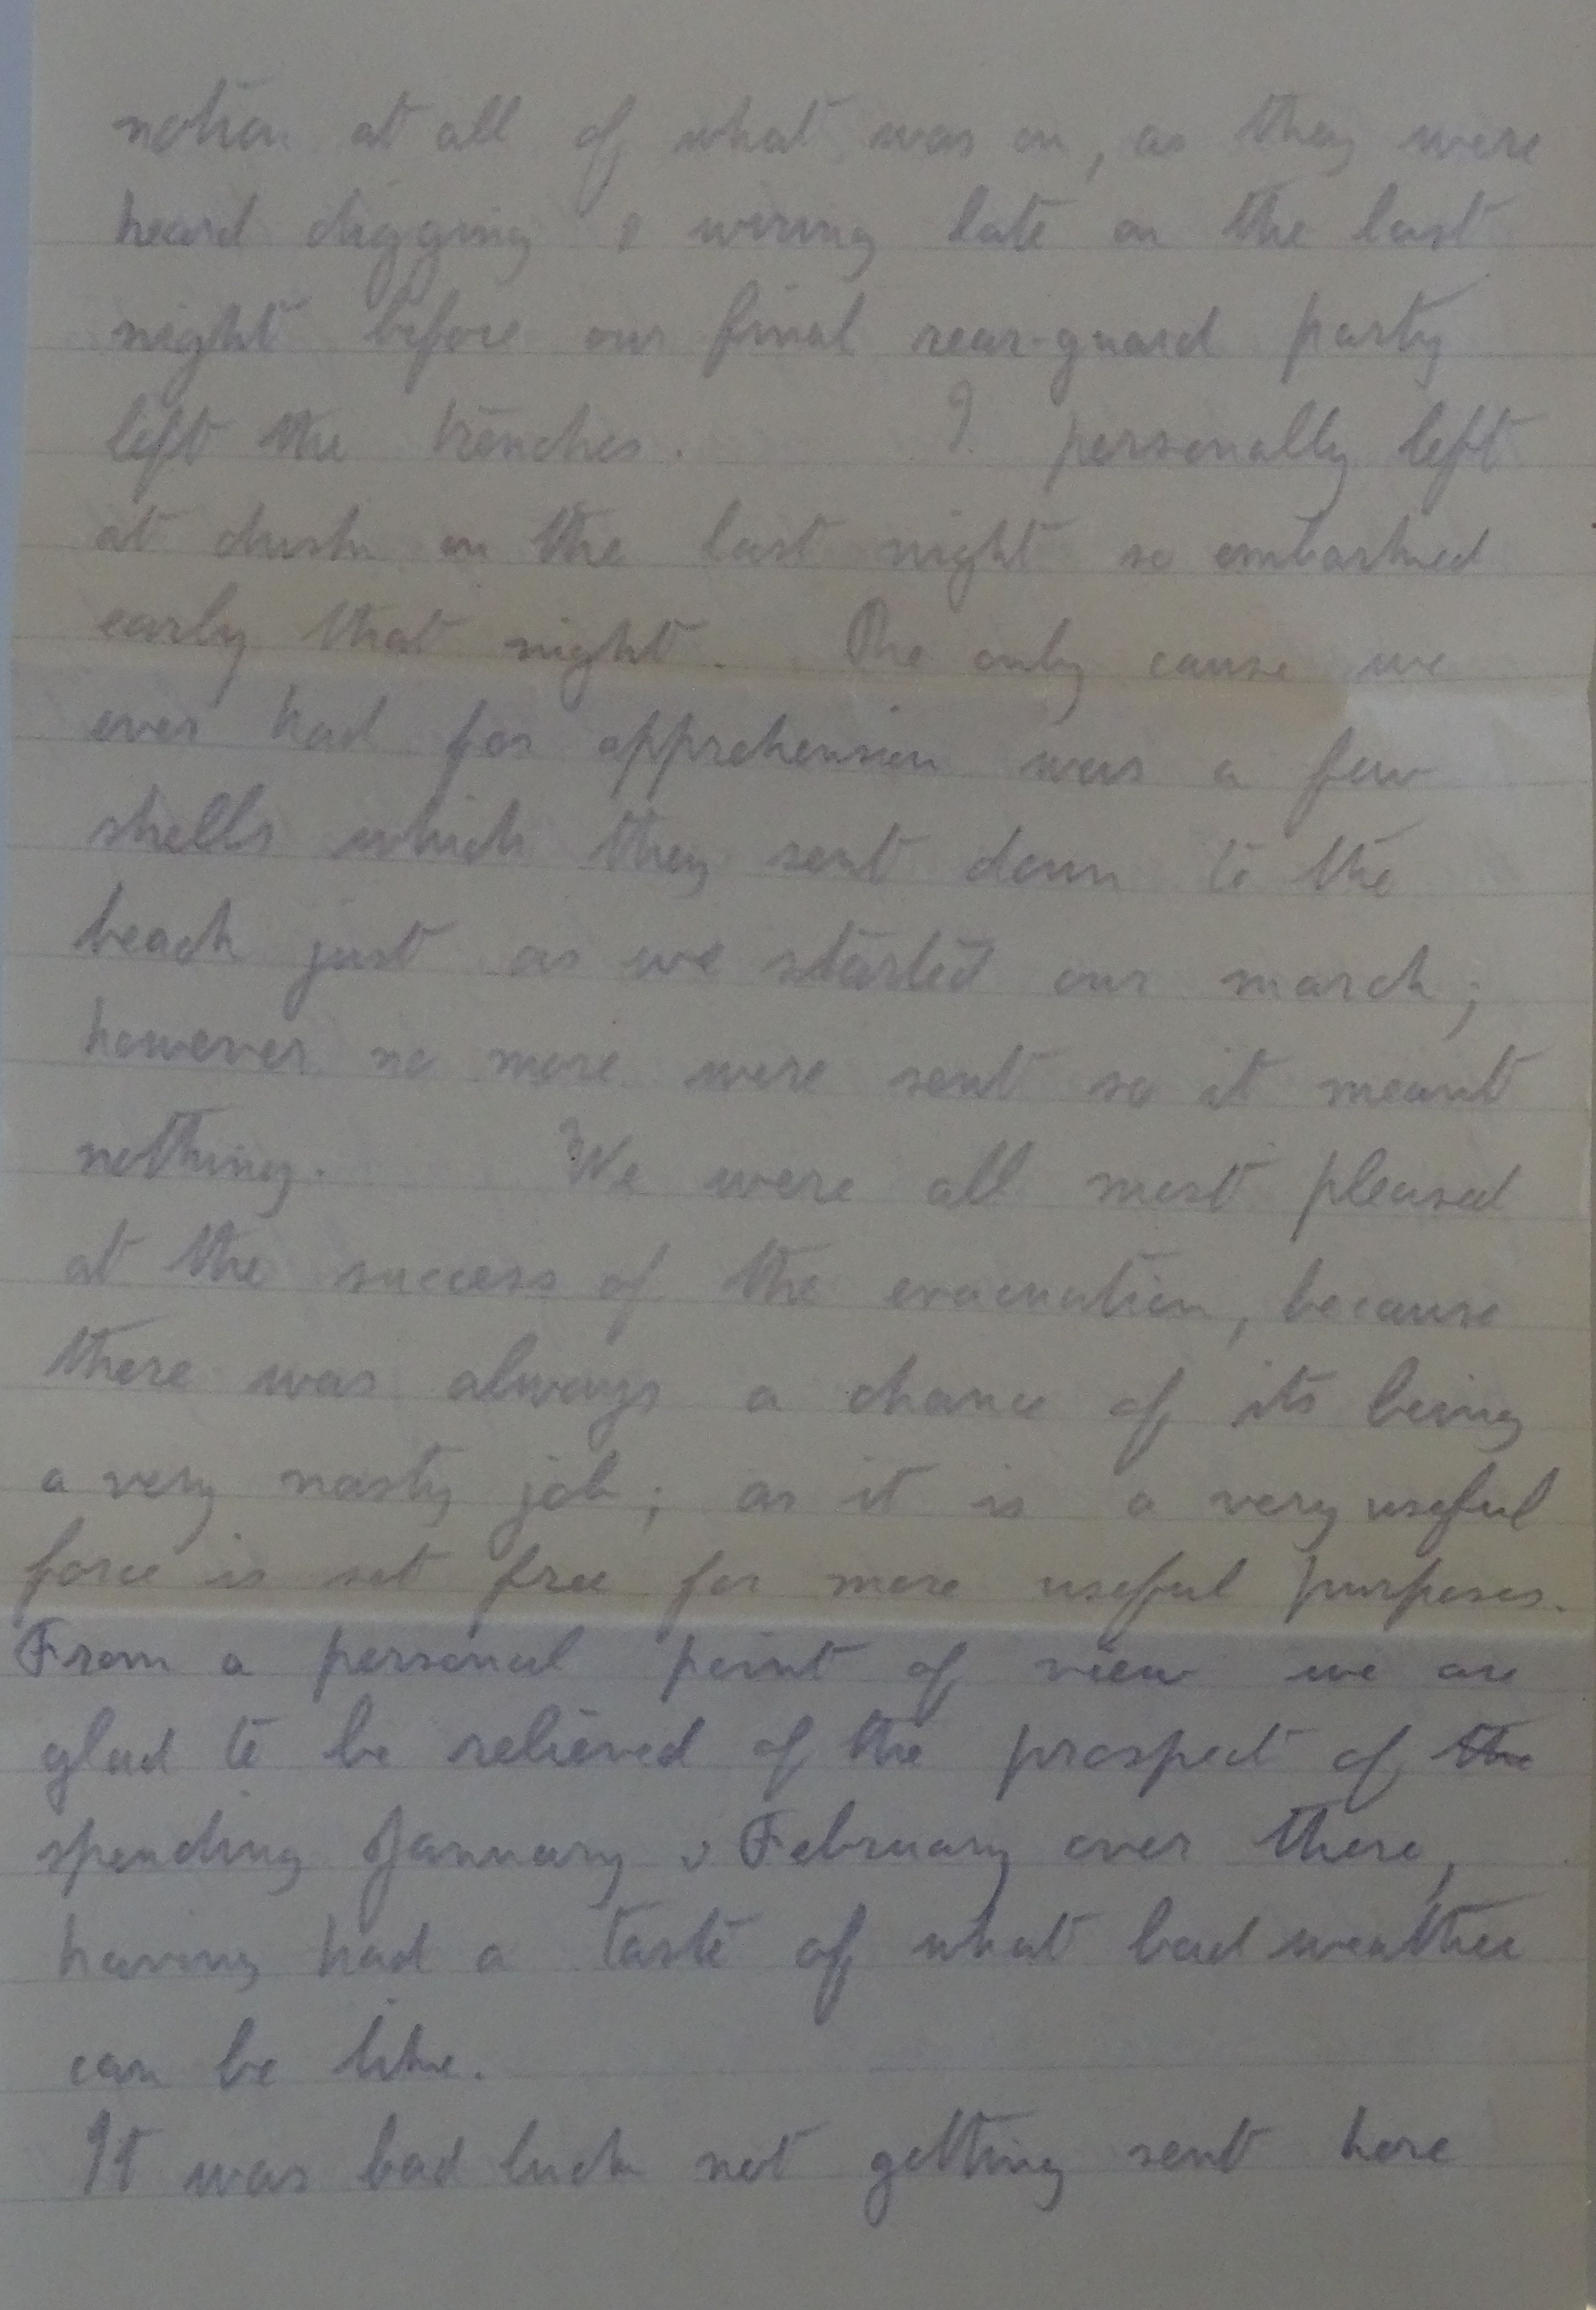 notion at all of what was on, as they were
heard digging & wiring late on the last
night before our final rear-guard party
left the trenches. I personally left
at dusk on the last night so embarked
early that night. The only cause we
ever had for apprehension was a few
shells which they sent down to the
beach just as we started our march;
however no more were sent so it meant
nothing. We were all most pleased
at the success of the evacuation, because
there was always a chance of its being
a very nasty job; as it is a very useful
force is set free for more useful purposes.
From a personal point of view we are
glad to be relieved of the prospect of the
spending January & February over there,
having had a taste of what bad weather
can be like.
It was bad luck not getting sent here